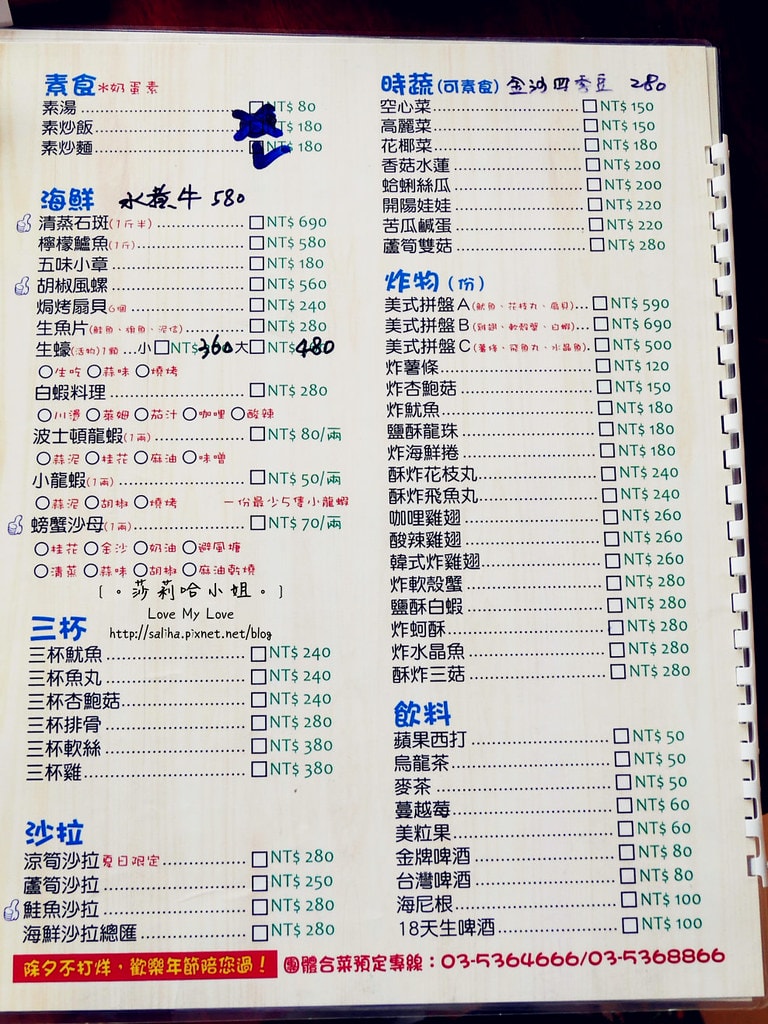 素食 ※奶蛋素
素湯 NT$ 80
素炒飯 NT$ 180
素炒麵 NT$ 180
海鮮 水煮牛 580
清蒸石斑(1斤半) NT$ 690
檸檬鱸魚(1斤) NT$ 580
五味小章 NT$ 180
胡椒風螺 NT$ 560
焗烤扇貝6個 NT$ 240
生魚片(鮭魚、旗魚、泥信) NT$ 280
生蠔(活物)1顆 ...小 NT$ 360 大 NT$ 480
生吃 蒜味 燒烤
白蝦料理 NT$ 280
川燙 泰姆 茄汁 咖哩 酸辣
波士頓龍蝦(1兩) NT$ 80/兩
蒜泥 桂花 麻油 味噌
小龍蝦(1兩) NT$ 50/兩
蒜泥 胡椒 燒烤 一份最少5隻小龍蝦
螃蟹沙母(1兩) NT$ 70/兩
桂花 金沙 奶油 避風塘
清蒸 蒜味 胡椒 麻油乾燒
〔。莎莉哈小姐。〕
Love My Love
http://saliha.pixnet.net/blog
三杯
三杯魷魚 NT$ 240
三杯魚丸 NT$ 240
三杯杏鮑菇 NT$ 240
三杯排骨 NT$ 280
三杯軟絲 NT$ 380
三杯雞 NT$ 380
沙拉
涼筍沙拉夏日限定 NT$ 280
蘆筍沙拉 NT$ 250
鮭魚沙拉 NT$ 280
海鮮沙拉總匯 NT$ 280
時蔬(可素食) 金沙四季豆 280
空心菜 NT$ 150
高麗菜 NT$ 150
花椰菜 NT$ 180
香菇水蓮 NT$ 200
蛤蜊絲瓜 NT$ 200
開陽娃娃 NT$ 220
苦瓜鹹蛋 NT$ 220
蘆筍雙菇 NT$ 280
炸物(份)
美式拼盤A(魷魚、花枝丸、扇貝) NT$ 590
美式拼盤B(雞翅、軟殼蟹、白蝦) NT$ 690
美式拼盤C(薯條、飛魚丸、水晶魚) NT$ 500
炸薯條 NT$ 120
炸杏鮑菇 NT$ 150
炸魷魚 NT$ 180
鹽酥龍珠 NT$ 180
炸海鮮捲 NT$ 180
酥炸花枝丸 NT$ 240
酥炸飛魚丸 NT$ 240
咖哩雞翅 NT$ 260
酸辣雞翅 NT$ 260
韓式炸雞翅 NT$ 260
炸軟殼蟹 NT$ 280
鹽酥白蝦 NT$ 280
炸蚵酥 NT$ 280
炸水晶魚 NT$ 280
酥炸三菇 NT$ 280
飲料
蘋果西打 NT$ 50
烏龍茶 NT$ 50
麥茶 NT$ 50
蔓越莓 NT$ 60
美粒果 NT$ 60
金牌啤酒 NT$ 80
台灣啤酒 NT$ 80
海尼根 NT$ 100
18天生啤酒 NT$ 100
除夕不打烊，歡樂年節陪您過！ 團體合菜預定專線：03-5364666/03-5368866